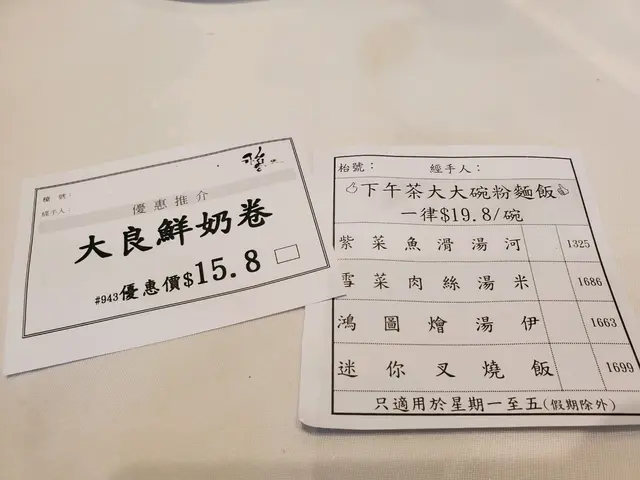 檯號:
經手人:
優惠推介
大良鮮奶卷
#943優惠價$15.8
枱號: 經手人:
下午茶大大碗粉麵飯
一律$19.8/碗
紫菜魚滑湯河 1325
雪菜肉絲湯米 1686
鴻圖燴湯伊 1663
迷你叉燒飯 1699
只適用於星期一至五(假期除外)